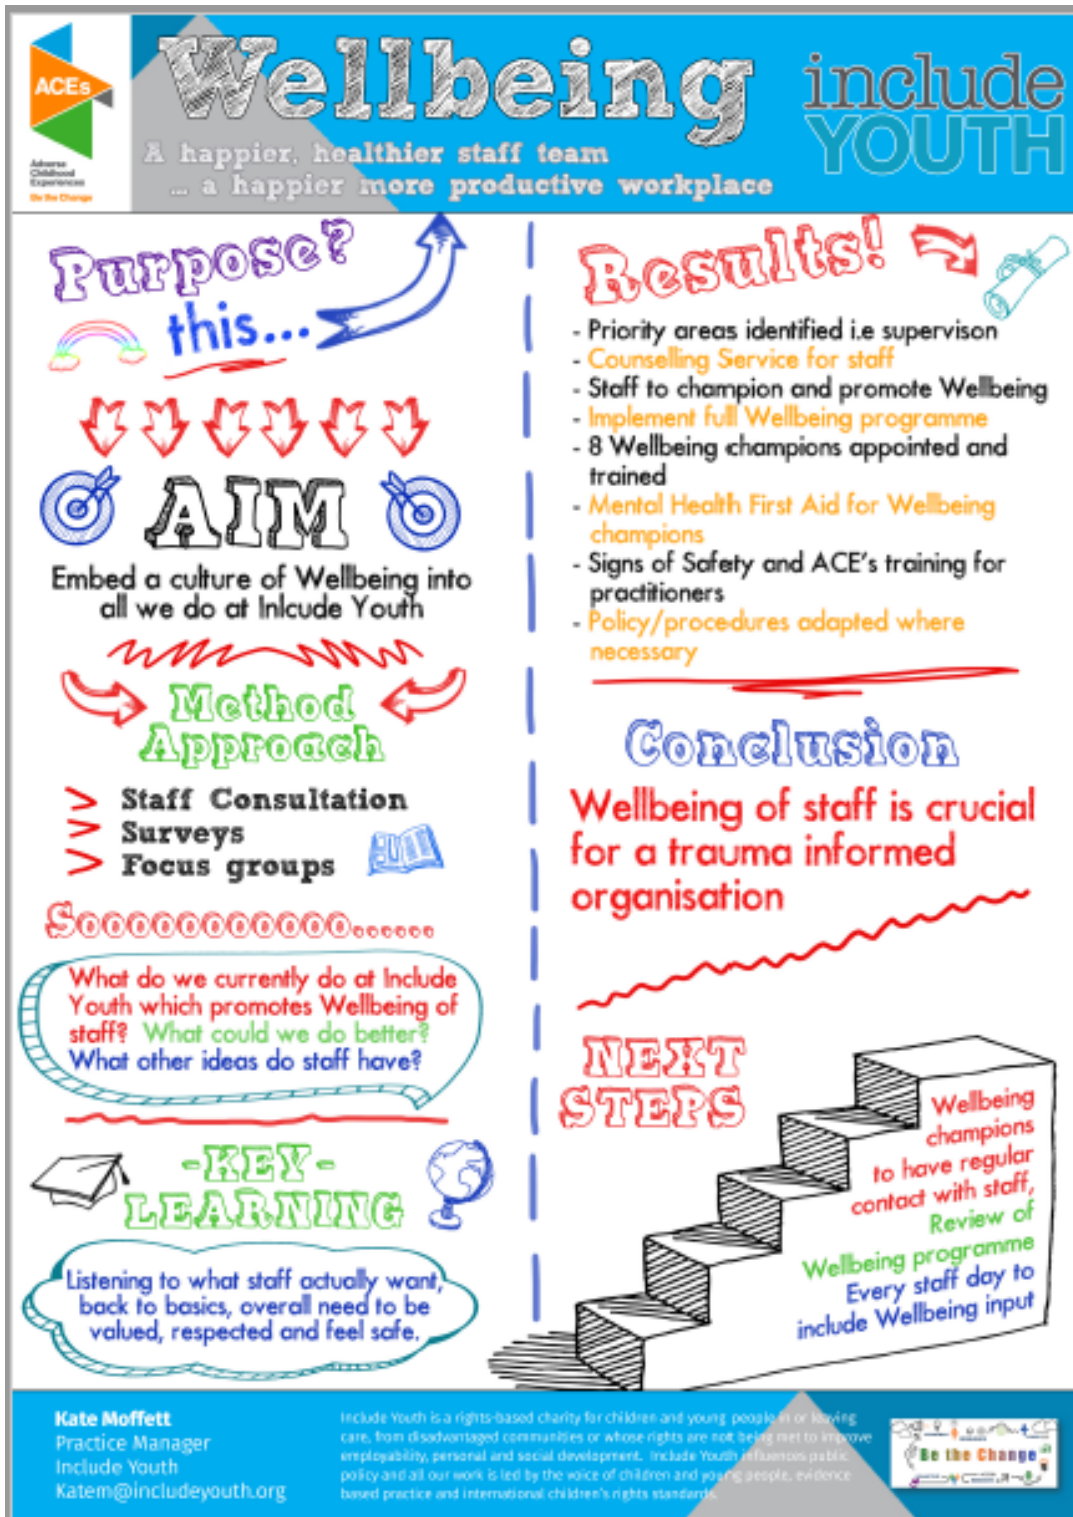 ACEs
Adverse
Childhood
Experiences
Be the Change
Wellbeing
A happier, healthier staff team
... a happier more productive workplace
include
YOUTH
Purpose?
this...
AIM
Embed a culture of Wellbeing into
all we do at Inlcude Youth
Method
Approach
> Staff Consultation
> Surveys
> Focus groups
Sooooooooooo......
What do we currently do at Include
Youth which promotes Wellbeing of
staff? What could we do better?
What other ideas do staff have?
-KEY-
LEARNING
Listening to what staff actually want,
back to basics, overall need to be
valued, respected and feel safe.
Results!
- Priority areas identified i.e supervison
- Counselling Service for staff
- Staff to champion and promote Wellbeing
- Implement full Wellbeing programme
- 8 Wellbeing champions appointed and
trained
- Mental Health First Aid for Wellbeing
champions
- Signs of Safety and ACE's training for
practitioners
- Policy/procedures adapted where
necessary
Conclusion
Wellbeing of staff is crucial
for a trauma informed
organisation
NEXT
STEPS
Wellbeing
champions
to have regular
contact with staff,
Review of
Wellbeing programme
Every staff day to
include Wellbeing input
Kate Moffett
Practice Manager
Include Youth
Katem@includeyouth.org
Include Youth is a rights-based charity for children and young people in or leaving
care, from disadvantaged communities or whose rights are not being met to improve
employability, personal and social development. Include Youth influences public
policy and all our work is led by the voice of children and young people, evidence
based practice and international children's rights standards.
Be the Change